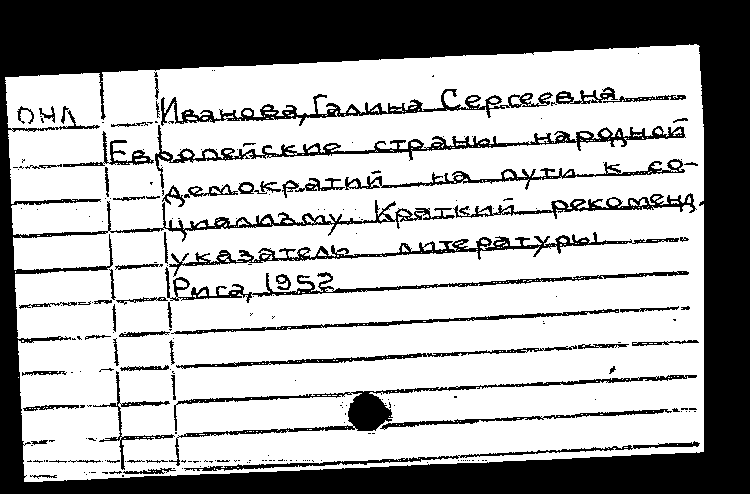 ОНЛ
Иванова, Галина Сергеевна.
Европейские страны народной
демократий на пути к со-
циализму. Краткий рекоменд.
указатель литературы
Рига, 1952